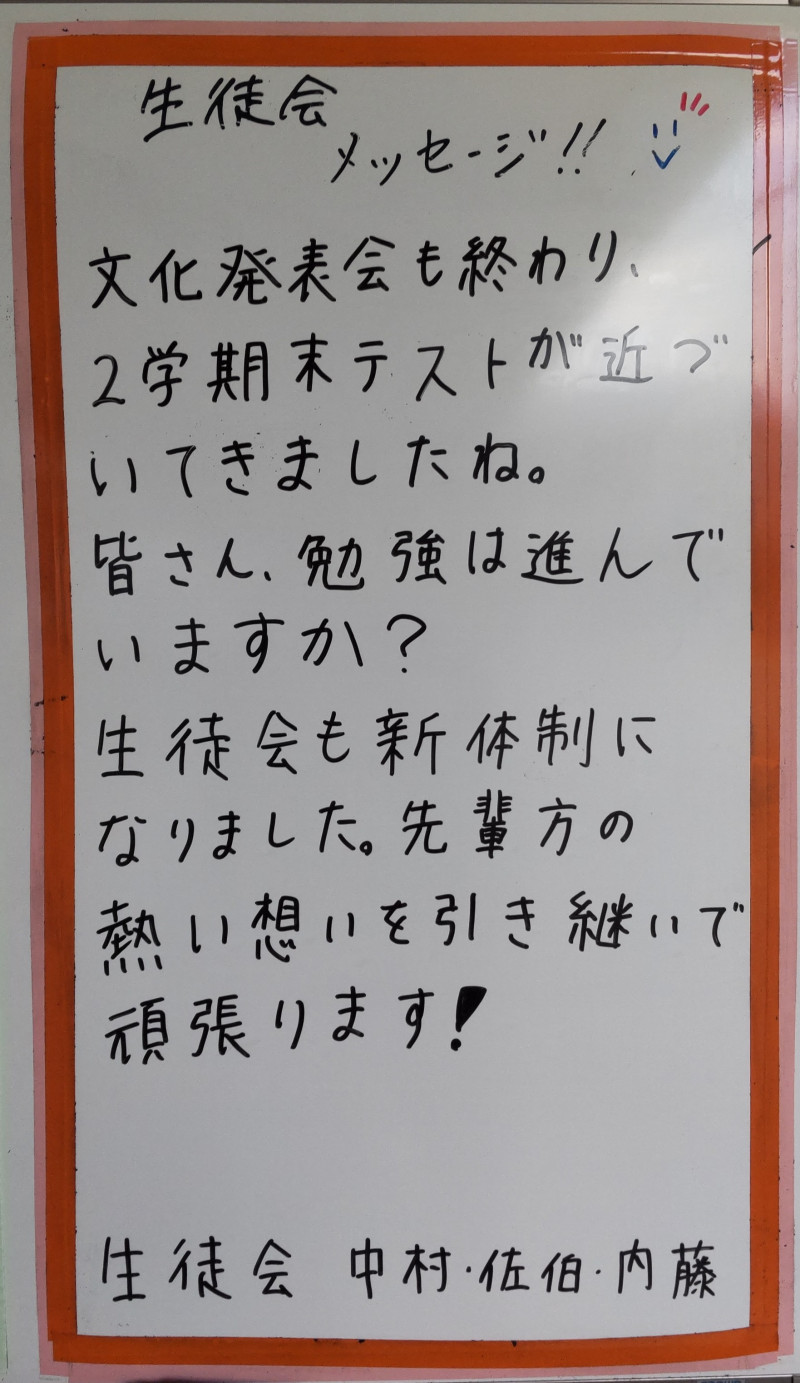 生徒会
メッセージ!!
文化発表会も終わり、
2学期末テストが近づ
いてきましたね。
皆さん、勉強は進んで
いますか?
生徒会も新体制に
なりました。先輩方の
熱い想いを引き継いで
頑張ります!
生徒会 中村・佐伯・内藤